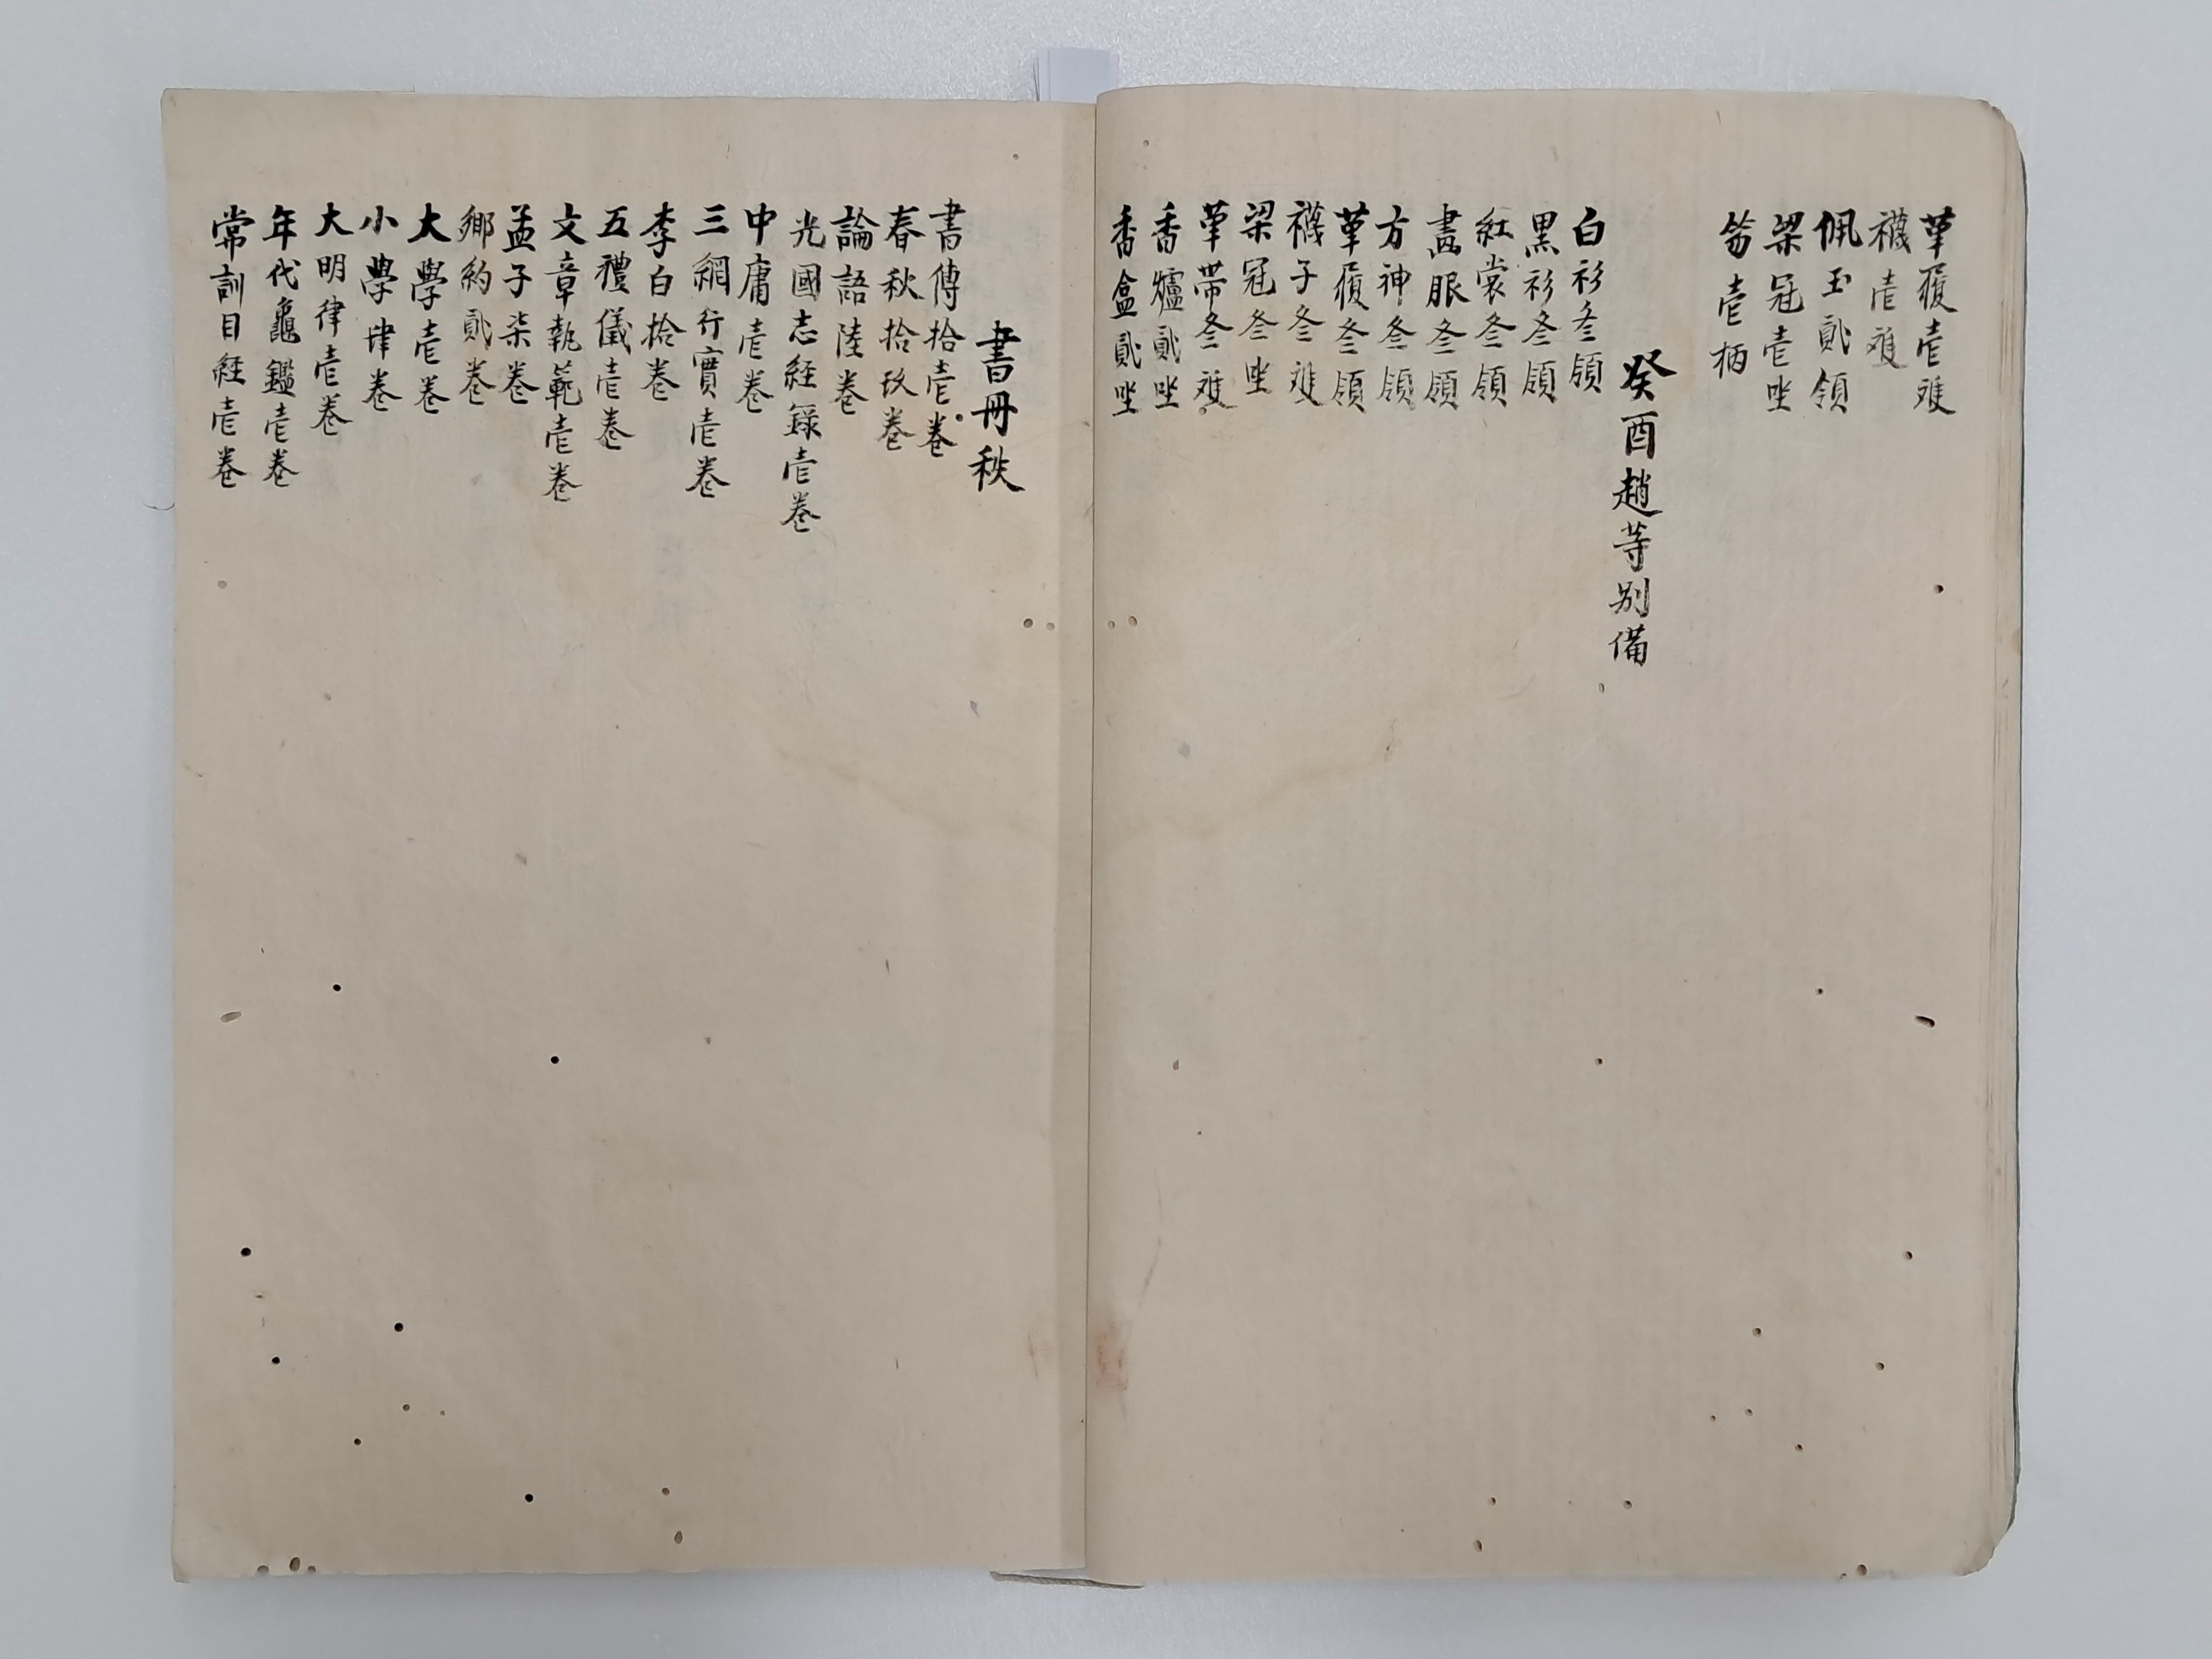 革履壱雙
襪壱雙
佩玉貳領
梁冠壱坐
笏壱柄
癸酉趙等別備
白衫叄領
黒衫叄領
紅裳叄領
畵服叄領
方神叄領
革履叄領
襪子叄雙
梁冠叄坐
革帶叄雙
香爐貳坐
香盒貳坐
書冊秩
書傳拾壱卷
春秋拾玖卷
論語陸卷
光國志経錄壱卷
中庸壱卷
三綱行實壱卷
李白拾卷
五禮儀壱卷
文章軌範壱卷
孟子柒卷
鄉約貳卷
大學壱卷
小學肆卷
大明律壱卷
年代龜鑑壱卷
常訓目経壱卷